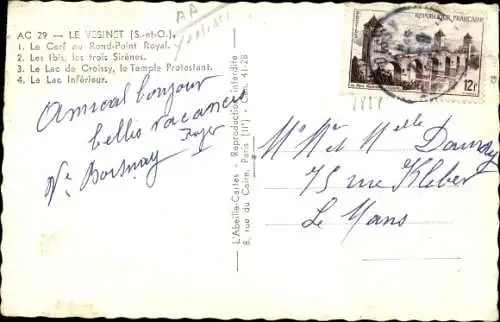 AC 29 — LE VESINET (S.-et-O.).
1. Le Cerf au Rond-Point Royal.
2. Les Ibis, les trois Sirènes.
3. Le Lac de Croissy, le Temple Protestant.
4. Le Lac Inférieur.
AA
Amical bonjour
belles vacances
Roger
L'Abeille-Cartes - Reproduction interdite
8, rue du Caire, Paris (IIe) - Cen. 41-28
REPUBLIQUE FRANÇAISE
12F
Mr Mr et Melle
75 rue Kleber
Le Mans